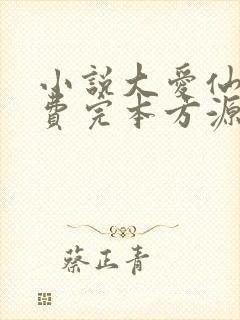 小説大愛仙
費完本方源
蔡正青